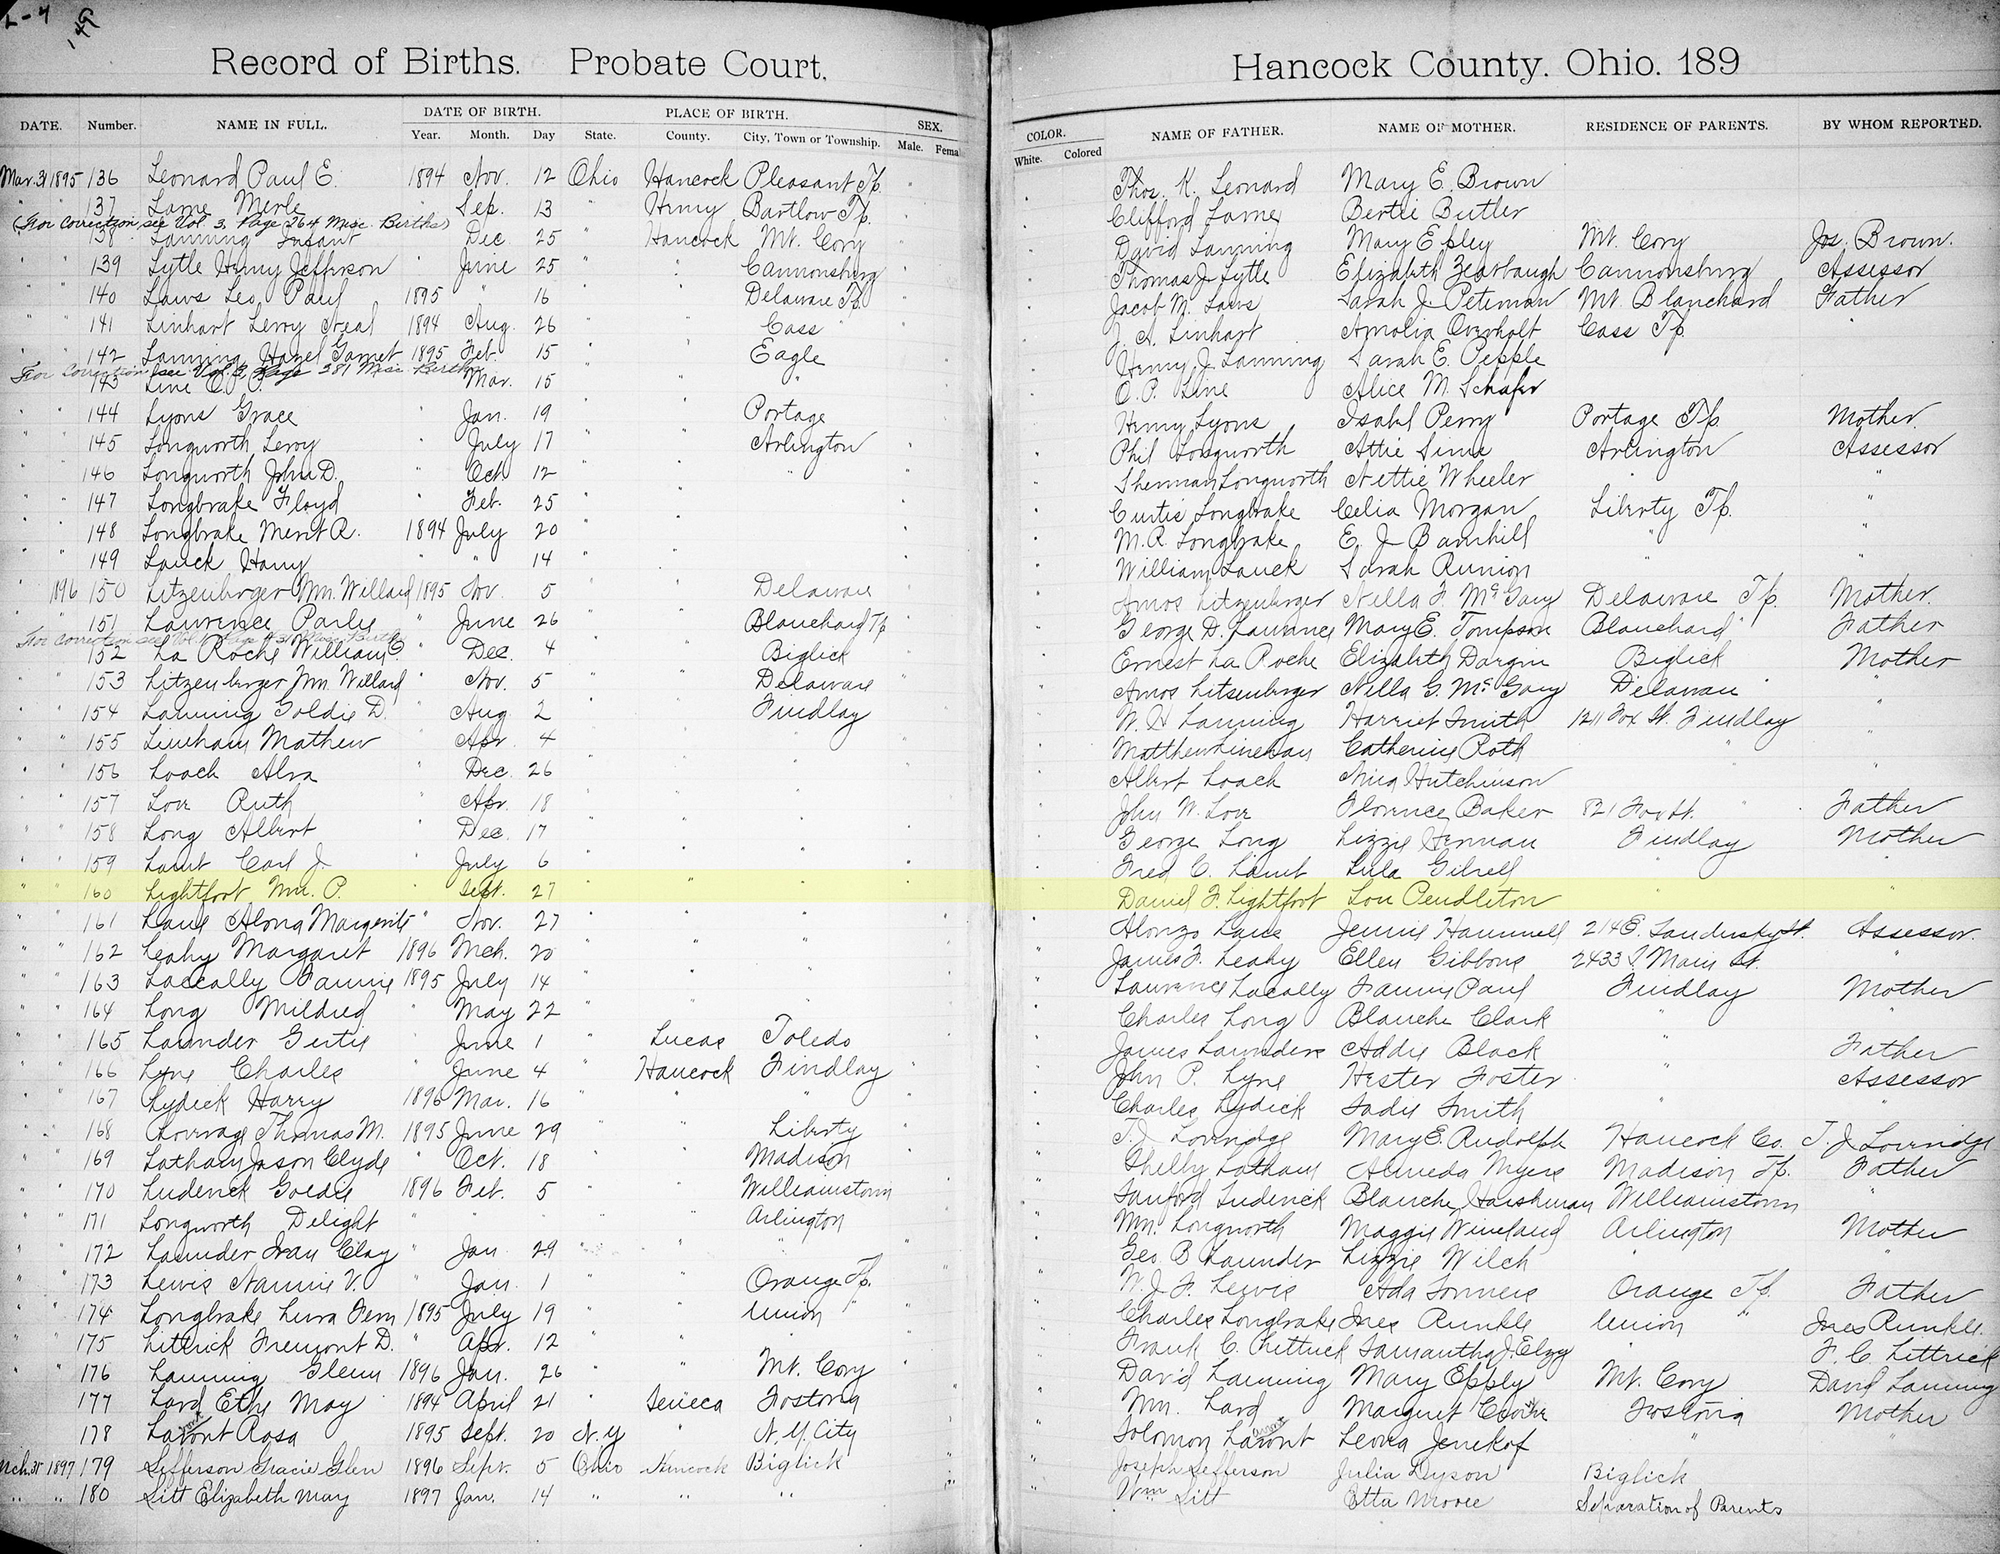 L-4
149
Record of Births. Probate Court, Hancock County. Ohio. 189
DATE. Number. NAME IN FULL. DATE OF BIRTH. PLACE OF BIRTH. SEX. COLOR. NAME OF FATHER. NAME OF MOTHER. RESIDENCE OF PARENTS. BY WHOM REPORTED.
Year. Month. Day State. County. City, Town or Township. Male. Femal White. Colored
Mar. 31 1895 136 Leonard Paul E. 1894 Nov. 12 Ohio Hancock Pleasant Tp. Thos. K. Leonard Mary E. Brown
" " 137 Larne Merle " Sep. 13 " Henry Bartlow Tp. Clifford Larne Bertie Butler
(For correction see Vol. 3, Page 264 Misc. Births)
138 Lanning Infant " Dec. 25 " Hancock Mt. Cory David Lanning Mary Epley Mt. Cory Jos. Brown.
" " 139 Lytle Henry Jefferson " June 25 " " Cannonsburg Thomas J. Lytle Elizabeth Zearbaugh Cannonsburg Assessor
" " 140 Laws Leo Paul 1895 " 16 " " Delaware Tp. Jacob M. Laws Sarah J. Peterman Mt. Blanchard Father
" " 141 Linhart Leroy Neal 1894 Aug. 26 " " Cass " J. A. Linhart Amolia Overholt Cass Tp. "
" " 142 Lanning Hazel Garnet 1895 Feb. 15 " " Eagle Henry J. Lanning Sarah E. Pepple
For correction see Vol. 3, Page 381 Misc. Births
143 Line O. P. " Mar. 15 " " " O. P. Line Alice M. Schafer
" " 144 Lyons Grace " Jan. 19 " " Portage Henry Lyons Isabel Perry Portage Tp. Mother.
" " 145 Longworth Leroy " July 17 " " Arlington Phil Longworth Attie Sims Arlington Assessor
" " 146 Longworth John D. " Oct 12 " " " Sherman Longworth Nettie Wheeler " "
" " 147 Longbrake Floyd " Feb. 25 " " Curtis Longbrake Celia Morgan Liberty Tp. "
" " 148 Longbrake Merit R. 1894 July 20 " " M. R. Longbrake E. J. Barnhill " "
" " 149 Lauck Harry " " 14 " " William Lauck Sarah Runion "
" 1896 150 Litzenberger Wm. Willard 1895 Nov. 5 " " Delaware Amos Litzenberger Nella F. McGary Delaware Tp. Mother.
" 151 Lawrence Parlie " June 26 " " Blanchard Tp George D. Lawrence Mary E. Tompson Blanchard " Father
For correction see Vol. Page Misc. Births
152 La Roche William " Dec. 4 " " Biglick Ernest La Roche Elizabeth Dargin Biglick Mother
" " 153 Litzenberger Wm. Willard " Nov. 5 " " Delaware Amos Litsenberger Nella G. McGary Delaware " "
" " 154 Lanning Goldie D. " Aug 2 " " Findlay W. H Lanning Harriet Smith 1211 Fox St. Findlay "
" " 155 Linehan Mathew " Apr. 4 " " " Matthew Linehan Catherine Roth " "
" " 156 Loach Alva " Dec. 26 " " " Albert Loach Hutchinson " "
" " 157 Lour Ruth " Apr. 18 " " " John W. Lour Florence Baker 821 " Father
" " 158 Long Albert " Dec. 17 " " " George Long Lizzie Herman Findlay Mother
" " 159 Lamt Carl J. " July 6 " " " Fred C. Lamt Lilla " "
" " 160 Lightfoot Wm. P. " Sept. 27 " " " Daniel F. Lightfoot Lou Pendleton " "
" " 161 Laus Along Margerite " Nov. 27 " " " Alonzo Laus Jennie Hammell 214 E. Sandusky St. Assessor.
" " 162 Leahy Margaret 1896 Mch. 20 " " " James F. Leahy Ellen Gibbons 2433 S. Main St. "
" " 163 Laccally Fannie 1895 July 14 " " " Laurence Lacally Fannie Paul Findlay Mother
" " 164 Long Mildred " May 22 " " " Charles Long Blanche Clark " "
" " 165 Launder Gertie " June 1 " Lucas Toledo James Launders Addie Black " Father
" " 166 Lyne Charles " June 4 " Hancock Findlay John P. Lyne Hester Foster " Assessor
" " 167 Lydick Harry 1896 Mar. 16 " " " Charles Lydick Sadie Smith " "
" " 168 Thomas M. 1895 June 29 " " Liberty T. J. Loveridge Mary E. Rudolph Hancock Co. T. J Loveridge
" " 169 Latham Jason Clyde " Oct. 18 " " Madison Shelby Latham Almeda Myers Madison Tp. Father
" " 170 Luderick Goldie 1896 Feb. 5 " " Williamstown Sanford Luderick Blanche Harshman Williamstown "
" " 171 Longworth Delight " " " " " Arlington Wm. Longworth Maggie Wineland Arlington Mother
" " 172 Launder Ivan Clay " Jan. 29 " " " Geo. B Launder Lizzie Wilch " "
" " 173 Lewis Nannie V. " Jan. 1 " " Orange Tp. W. J. F. Lewis Ada Sonners Orange Tp. Father
" " 174 Longbrake Lura Fern 1895 July 19 " " Union " Charles Longbrake Ines Runkle Union " Ines Runkle.
" " 175 Littrick Fremont D. " Apr. 12 " " " Frank C. Littrick Samantha J. Elzy F. C. Littrick
" " 176 Lanning Glenn 1896 Jan. 26 " " Mt. Cory David Lanning Mary Epply Mt. Cory David Lanning
" " 177 Lard Ethe May 1894 April 21 " Seneca Fostoria Wm. Lard Margret Fostoria Mother
" " 178 Lavont Rosa 1895 Sept. 20 N.Y " N. Y. City Solomon Lavont Leona Jenekof " "
Mch. 31 1897 179 Lefferson Gracie Glen 1896 Sept. 5 Ohio Hancock Biglick Joseph Lefferson Julia Dyson Biglick
" " 180 Litt Elizabeth May 1897 Jan. 14 " " " Wm Litt Etta Moore Separation of Parents